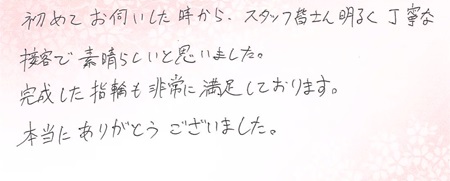 初めてお伺いした時から、スタッフ皆さん明るく丁寧な
接客で素晴らしいと思いました。
完成した指輪も非常に満足しております。
本当にありがとうございました。